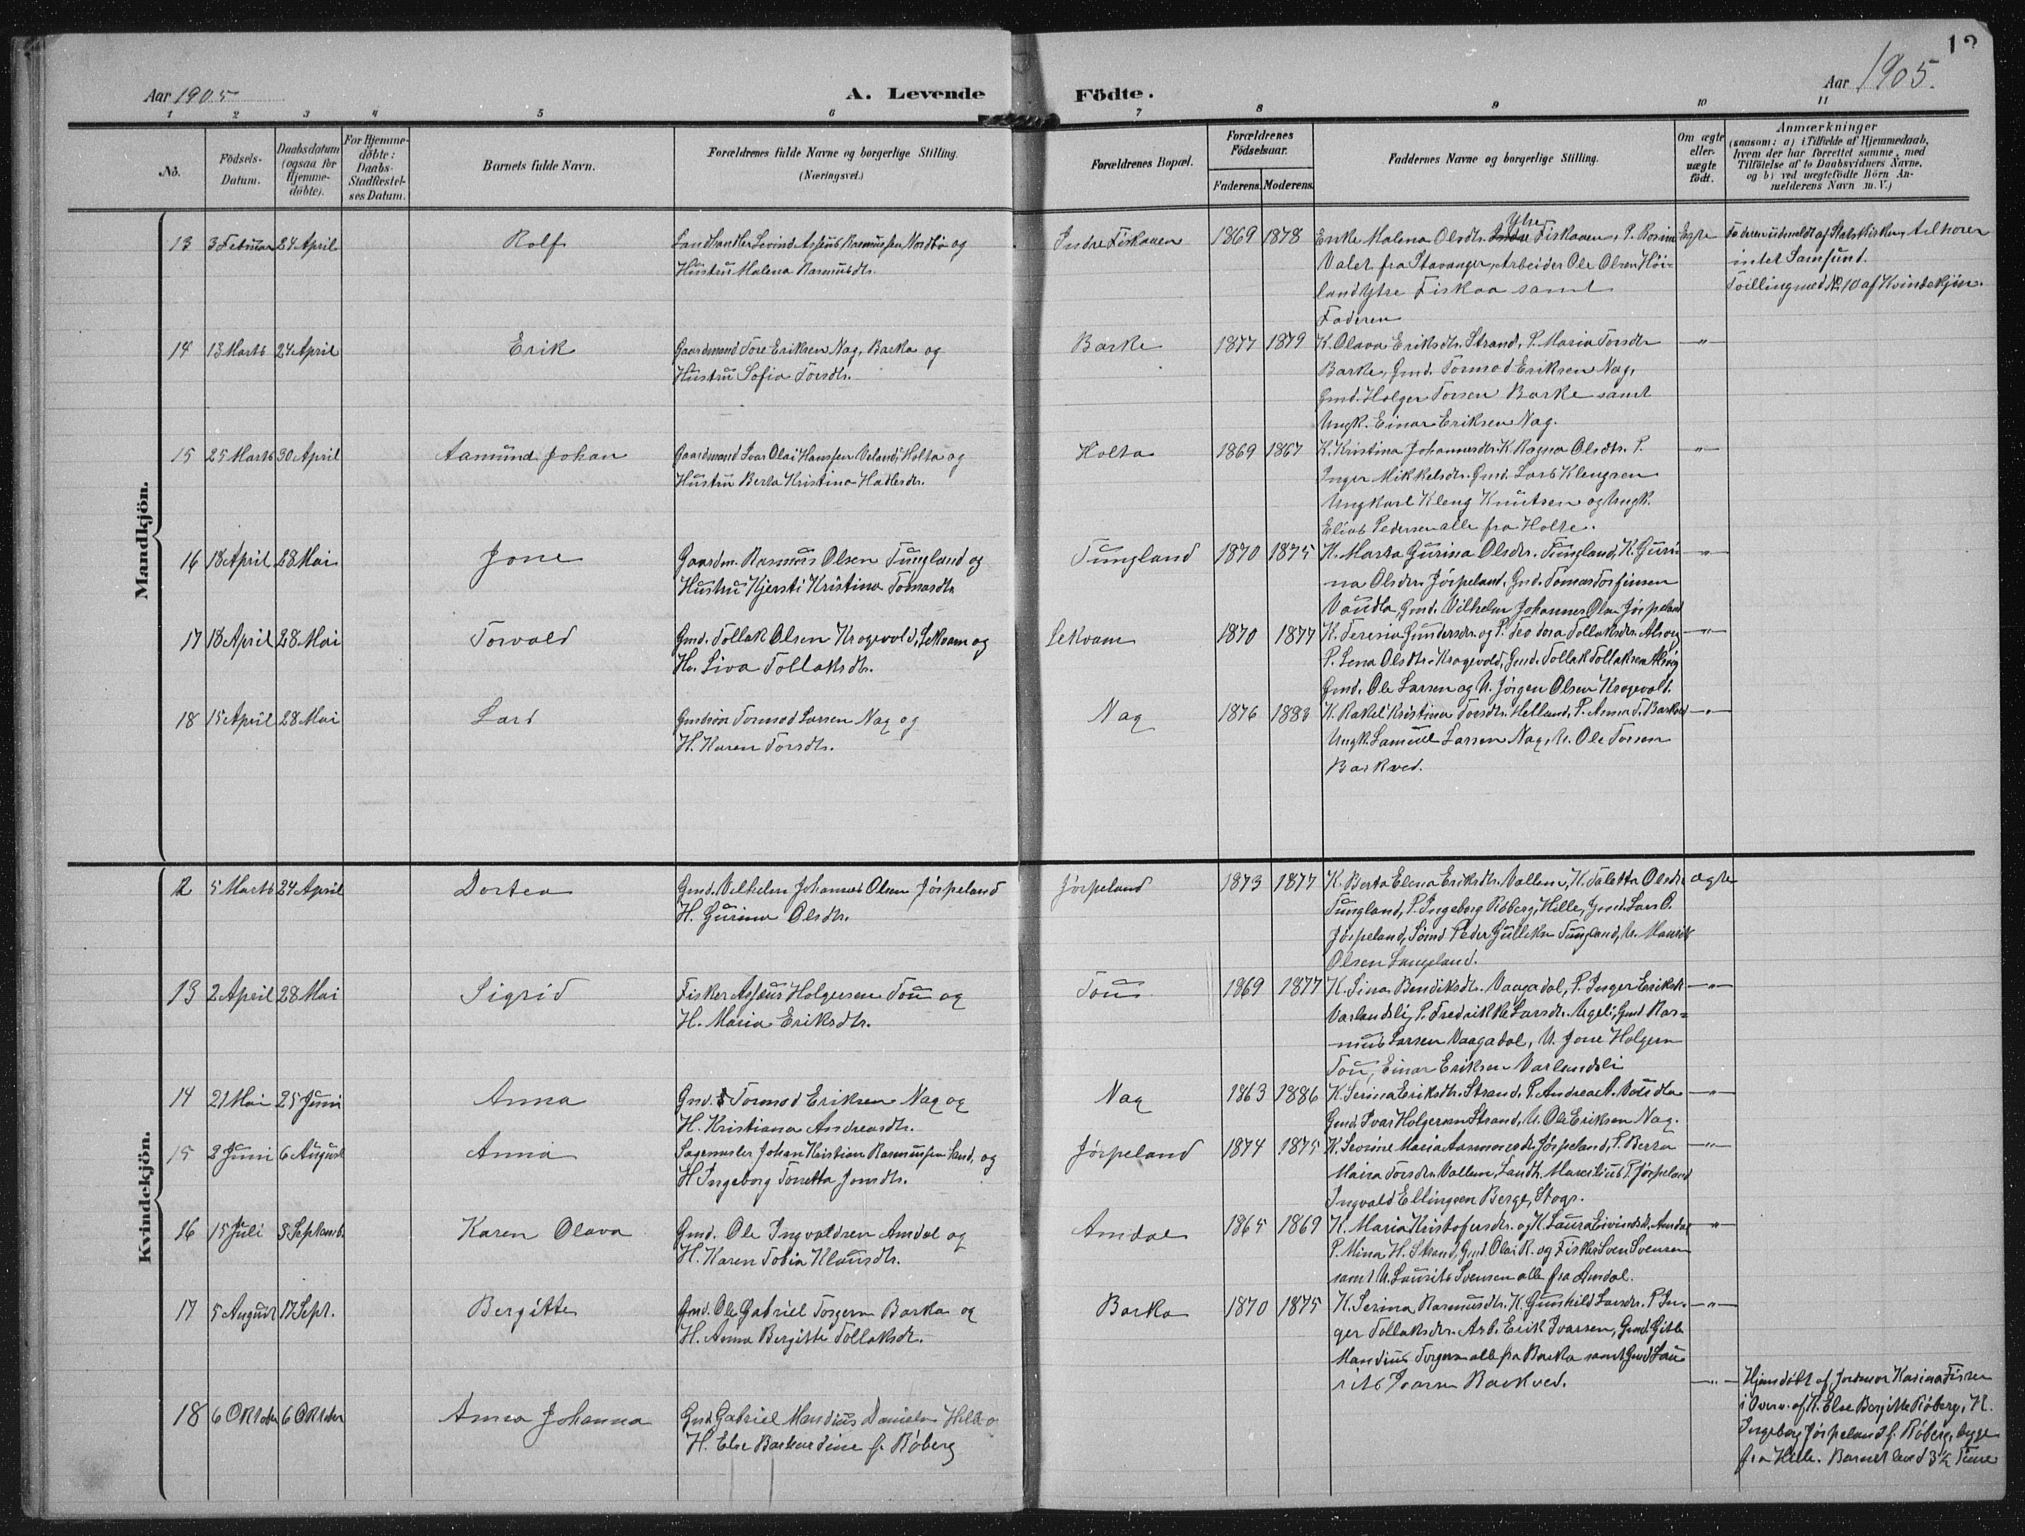 Aar 1905
A. Levende
Födte.
Aar 1905.
12
1 2 3 4 5 6 7 8 9 10 11
No.
Födsels-
Datum.
Daabsdatum
(ogsaa for
Hjemme-
döbte).
For Hjemme-
döbte:
Daabs-
Stadfæstel-
ses Datum.
Barnets fulde Navn.
Forældrenes fulde Navne og borgerlige Stilling.
(Næringsvei.)
Forældrenes Bopæl.
Forældrenes
Födselsaar.
Faderens. Moderens.
Faddernes Navne og borgerlige Stilling.
Om ægte
eller
uægte
födt.
Anmærkninger
(saasom: a) i Tilfælde af Hjemmedaab,
hvem der har forrettet samme, med
Tilföielse af to Daabsvidners Navne,
og b) ved uægtefödte Börn An-
melderens Navn m. V.)
Mandkjön.
13 3 Februar 24 April Rolf
Landhandler Sevind Asseus Rasmussen Nordbö og
Hustru Malena Rasmusdtr.
Indre Fiskaaen 1869 1878
Enke Malena Olsdtr. Ytre Fiskaaen, P. Rosine
Valet fra Stavanger, Arbeider Ole Olsen Höi-
land Ytre Fiskaa samt
Faderen
Egte
Faderen udmeldt af Statskirken, tilhører
intet Samfund.
Tvilling med No 10 af Kvindekjøn.
14 13 Marts 24 April Erik
Gaardmand Tore Eriksen Nag, Barka og
Hustru Sofia Torsdtr.
Barke 1877 1879
K. Olava Eriksdtr. Strand, P. Maria Torsdtr
Barke, Gmd. Tormod Eriksen Nag,
Gmd. Holger Torsen Barke samt
Ungk. Einar Eriksen Nag.
15 25 Marts 30 April Aamund Johan
Gaardmand Ivar Olai Hanssen Veland, Holta og
Hustru Berta Kristina Hadlesdr.
Holta 1869 1867
K. Kristina Johannesdtr. K. Ragna Olsdtr. P.
Inger Mikkelsdtr. Gmd. Lars Klengsen
Ungkarl Kleng Knutsen og Ungk.
Elias Pedersen alle fra Holte.
16 18 April 28 Mai Jone
Gaardm. Rasmus Olsen Tungland og
Hustru Kjersti Kristina Tomasdtr
Tungland 1870 1875
K. Marta Gurina Olsdtr. Tungland, K. Guri-
na Olsdtr. Jørpeland, Gmd. Tomas Torfinsen
Voudla, Gmd. Vilhelm Johannes Olsen Jørpeland
17 18 April 28 Mai Torvald
Gmd. Tollak Olsen Krogevold, Lekvam og
Hu. Siva Tollaksdtr.
Lekvam 1870 1877
K. Teresia Gundersdtr. og P. Teodora Tollaksdtr. Alsvig
P. Lena Olsdtr. Krogevold, Gmd. Tollak Tollaksen Alsvig
Gmd. Ole Larsen og U. Jørgen Olsen Krogevold.
18 15 April 28 Mai Lars
Gmdsön Tormod Larsen Nag og
H. Karen Torsdtr.
Nag 1876 1883
K. Rakel Kristina Torsdtr. Helland, P. Anna T. Barkved
Ungk. Samuel Larsen Nag, U. Ole Torsen
Barkved.
Kvindekjön.
12 5 Marts 24 April Dortea
Gmd. Vilhelm Johannes Olsen Jørpeland
H. Gurina Olsdtr.
Jørpeland 1873 1877
K. Berta Elena Eriksdtr. Vallem, K. Taletta Olsdtr
Tungland, P. Ingeborg Røberg, Hille, Gmd. Lars O.
Jørpeland, Sömd Peder Gulliksn Tungland, U. Maurits
Olsen Langeland.
ægte
13 2 April 28 Mai Sigrid
Fisker Asseus Holgersen Tou og
H. Maria Eriksdtr.
Tou 1869 1877
K. Sina Bendiksdtr. Vaagadal, P. Inger Eriksdtr
Varlandsli, P. Fredrikke Larsdtr. Ugeli, Gmd Ras-
mus Larsen Vaagadal, U. Jone Holgersn
Tou, Einar Eriksen Varlandsli
14 21 Mai 25 Juni Anna
Gmd. Tormod Eriksen Nag og
H. Kristiana Andreasdtr.
Nag 1863 1886
K. Serina Eriksdtr. Strand, P. Andrea A. Voudla
Gmd. Ivar Holgersen Strand, U. Ole Eriksen Nag.
15 2 Juni 6 August Anna
Sagmester Johan Kristian Rasmussen Sand, og
H. Ingeborg Tonetta Jonsdtr.
Jørpeland 1874 1875
K. Severine Maria Aanonsdtr. Jørpeland, P. Berta
Maria Torsdtr. Vallem, Landh. Marselius P. Jørpeland
Ingvald Ellingsen Berge, Stogr.
16 15 Juli 3 Septemb. Karen Olava
Gmd. Ole Ingvaldsen Amdal og
H. Karen Tobia Klausdtr.
Amdal 1865 1869
K. Maria Kristofersdtr. og K. Laura Eivindsdtr. Amdal
P. Mina H. Strand, Gmd. Olai R. og Fisker Sven Svensen
samt U. Laurits Svensen alle fra Amdal.
17 5 August 17 Sept. Bergitte
Gmd. Ole Gabriel Torgersn Barka og
H. Anna Bergitte Tollaksdtr.
Barka 1870 1875
K. Serina Rasmusdtr. K. Gunhild Larsdtr. P. In-
ger Tollaksdtr. Arb. Erik Ivarsen, Gmd. Gitle
Mandius Torgersn alle fra Barka samt Gmd Lau-
rits Ivarsen Barkved.
18 6 Oktober 6 Oktober Anna Johanna
Gmd. Gabriel Mandius Danielsn Hille o
H. Else Barhardine f. Røberg
Hjemdöbt af Jordmor Karina Fisker
i Overv. af K. Else Bergitte Røberg, K.
Ingeborg Jørpeland f. Røberg, begge
fra Hille. Barnet leved 3½ Time